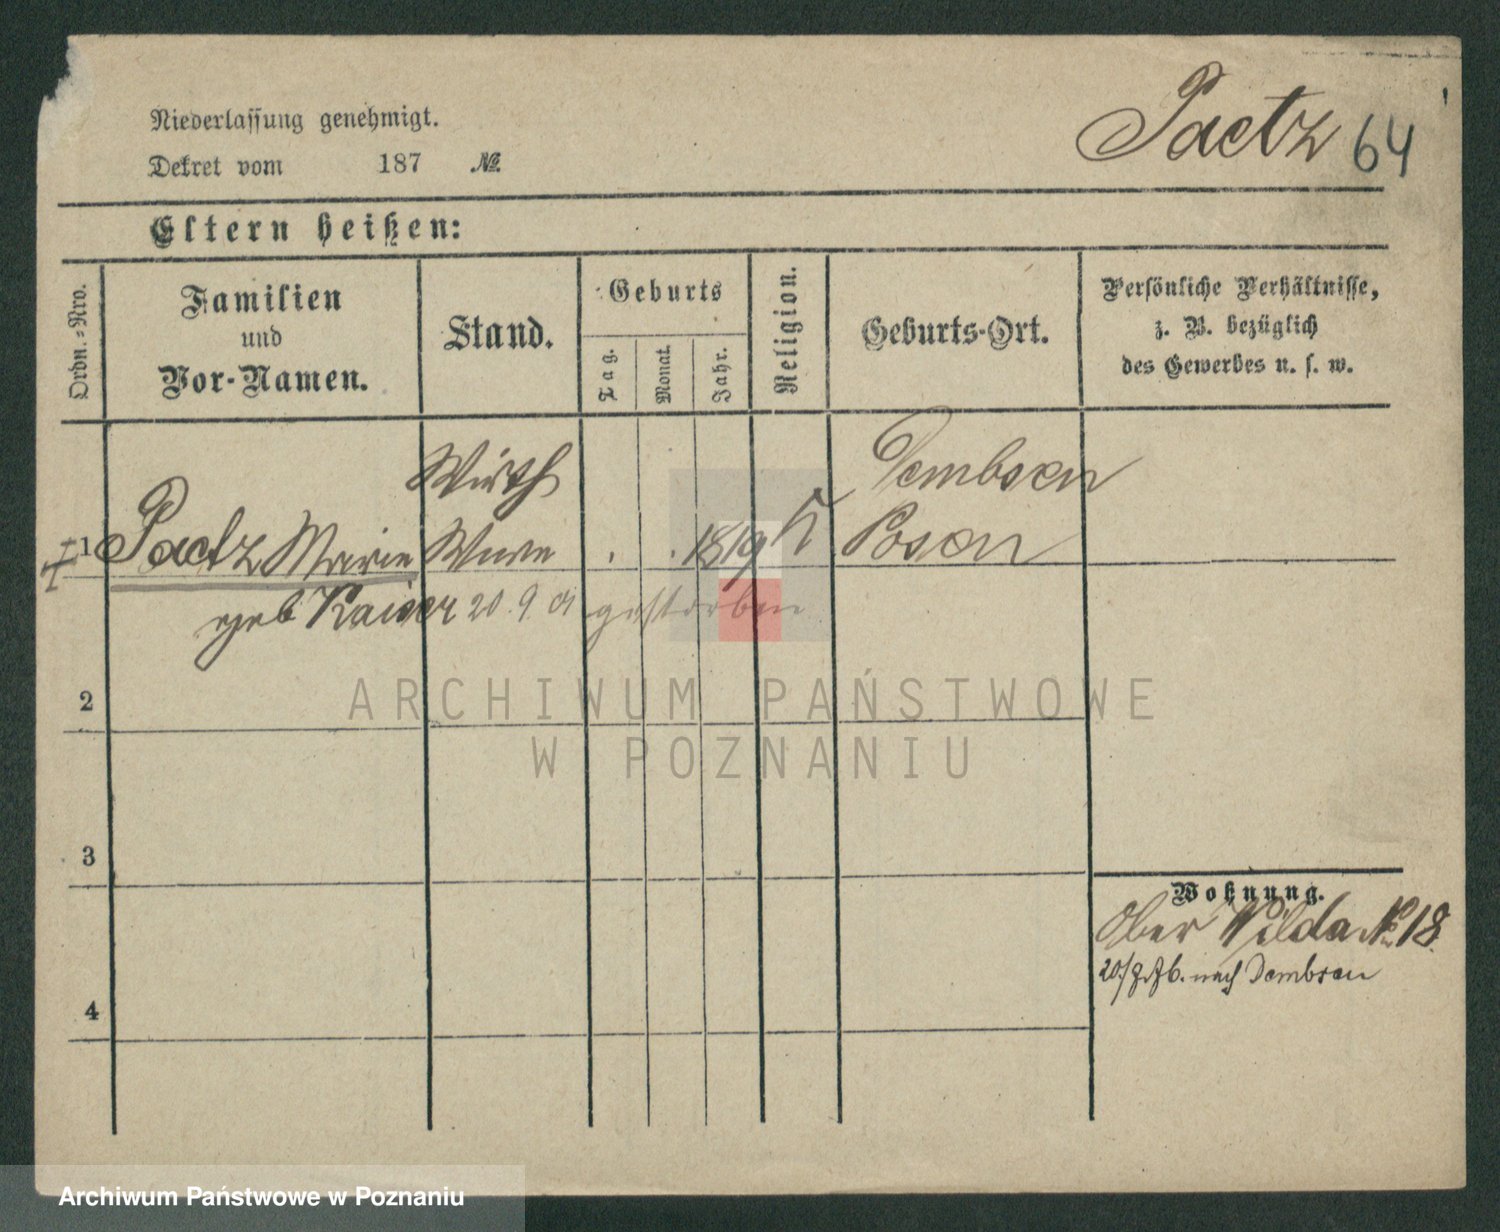 Paetz 64
Niederlassung genehmigt.
Dekret vom 187 №
Eltern heißen:
Ordn.-Nro.
Familien
und
Vor-Namen.
Stand.
Geburts
Tag.
Monat.
Jahr.
Religion.
Geburts-Ort.
Persönliche Verhältnisse,
z. B. bezüglich
des Gewerbes u. s. w.
Wirth Dembsen
1 Paetz Marie Wwe 1819 K Posen
geb Kaiser 20. 9. 01 gestorben
2
3
4
Wohnung.
Ober Wilda No 18
nach Dembsen
ARCHIWUM PAŃSTWOWE
W POZNANIU
Archiwum Państwowe w Poznaniu